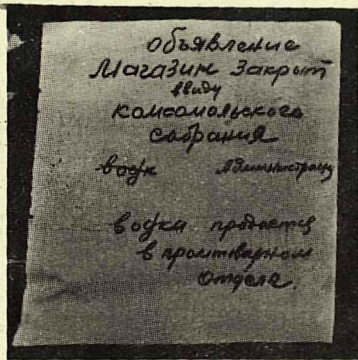 объявление
Магазин Закрыт
ввиду
комсомольского
собрания
водк Администрац
водка продается
в промтварном
отделе.